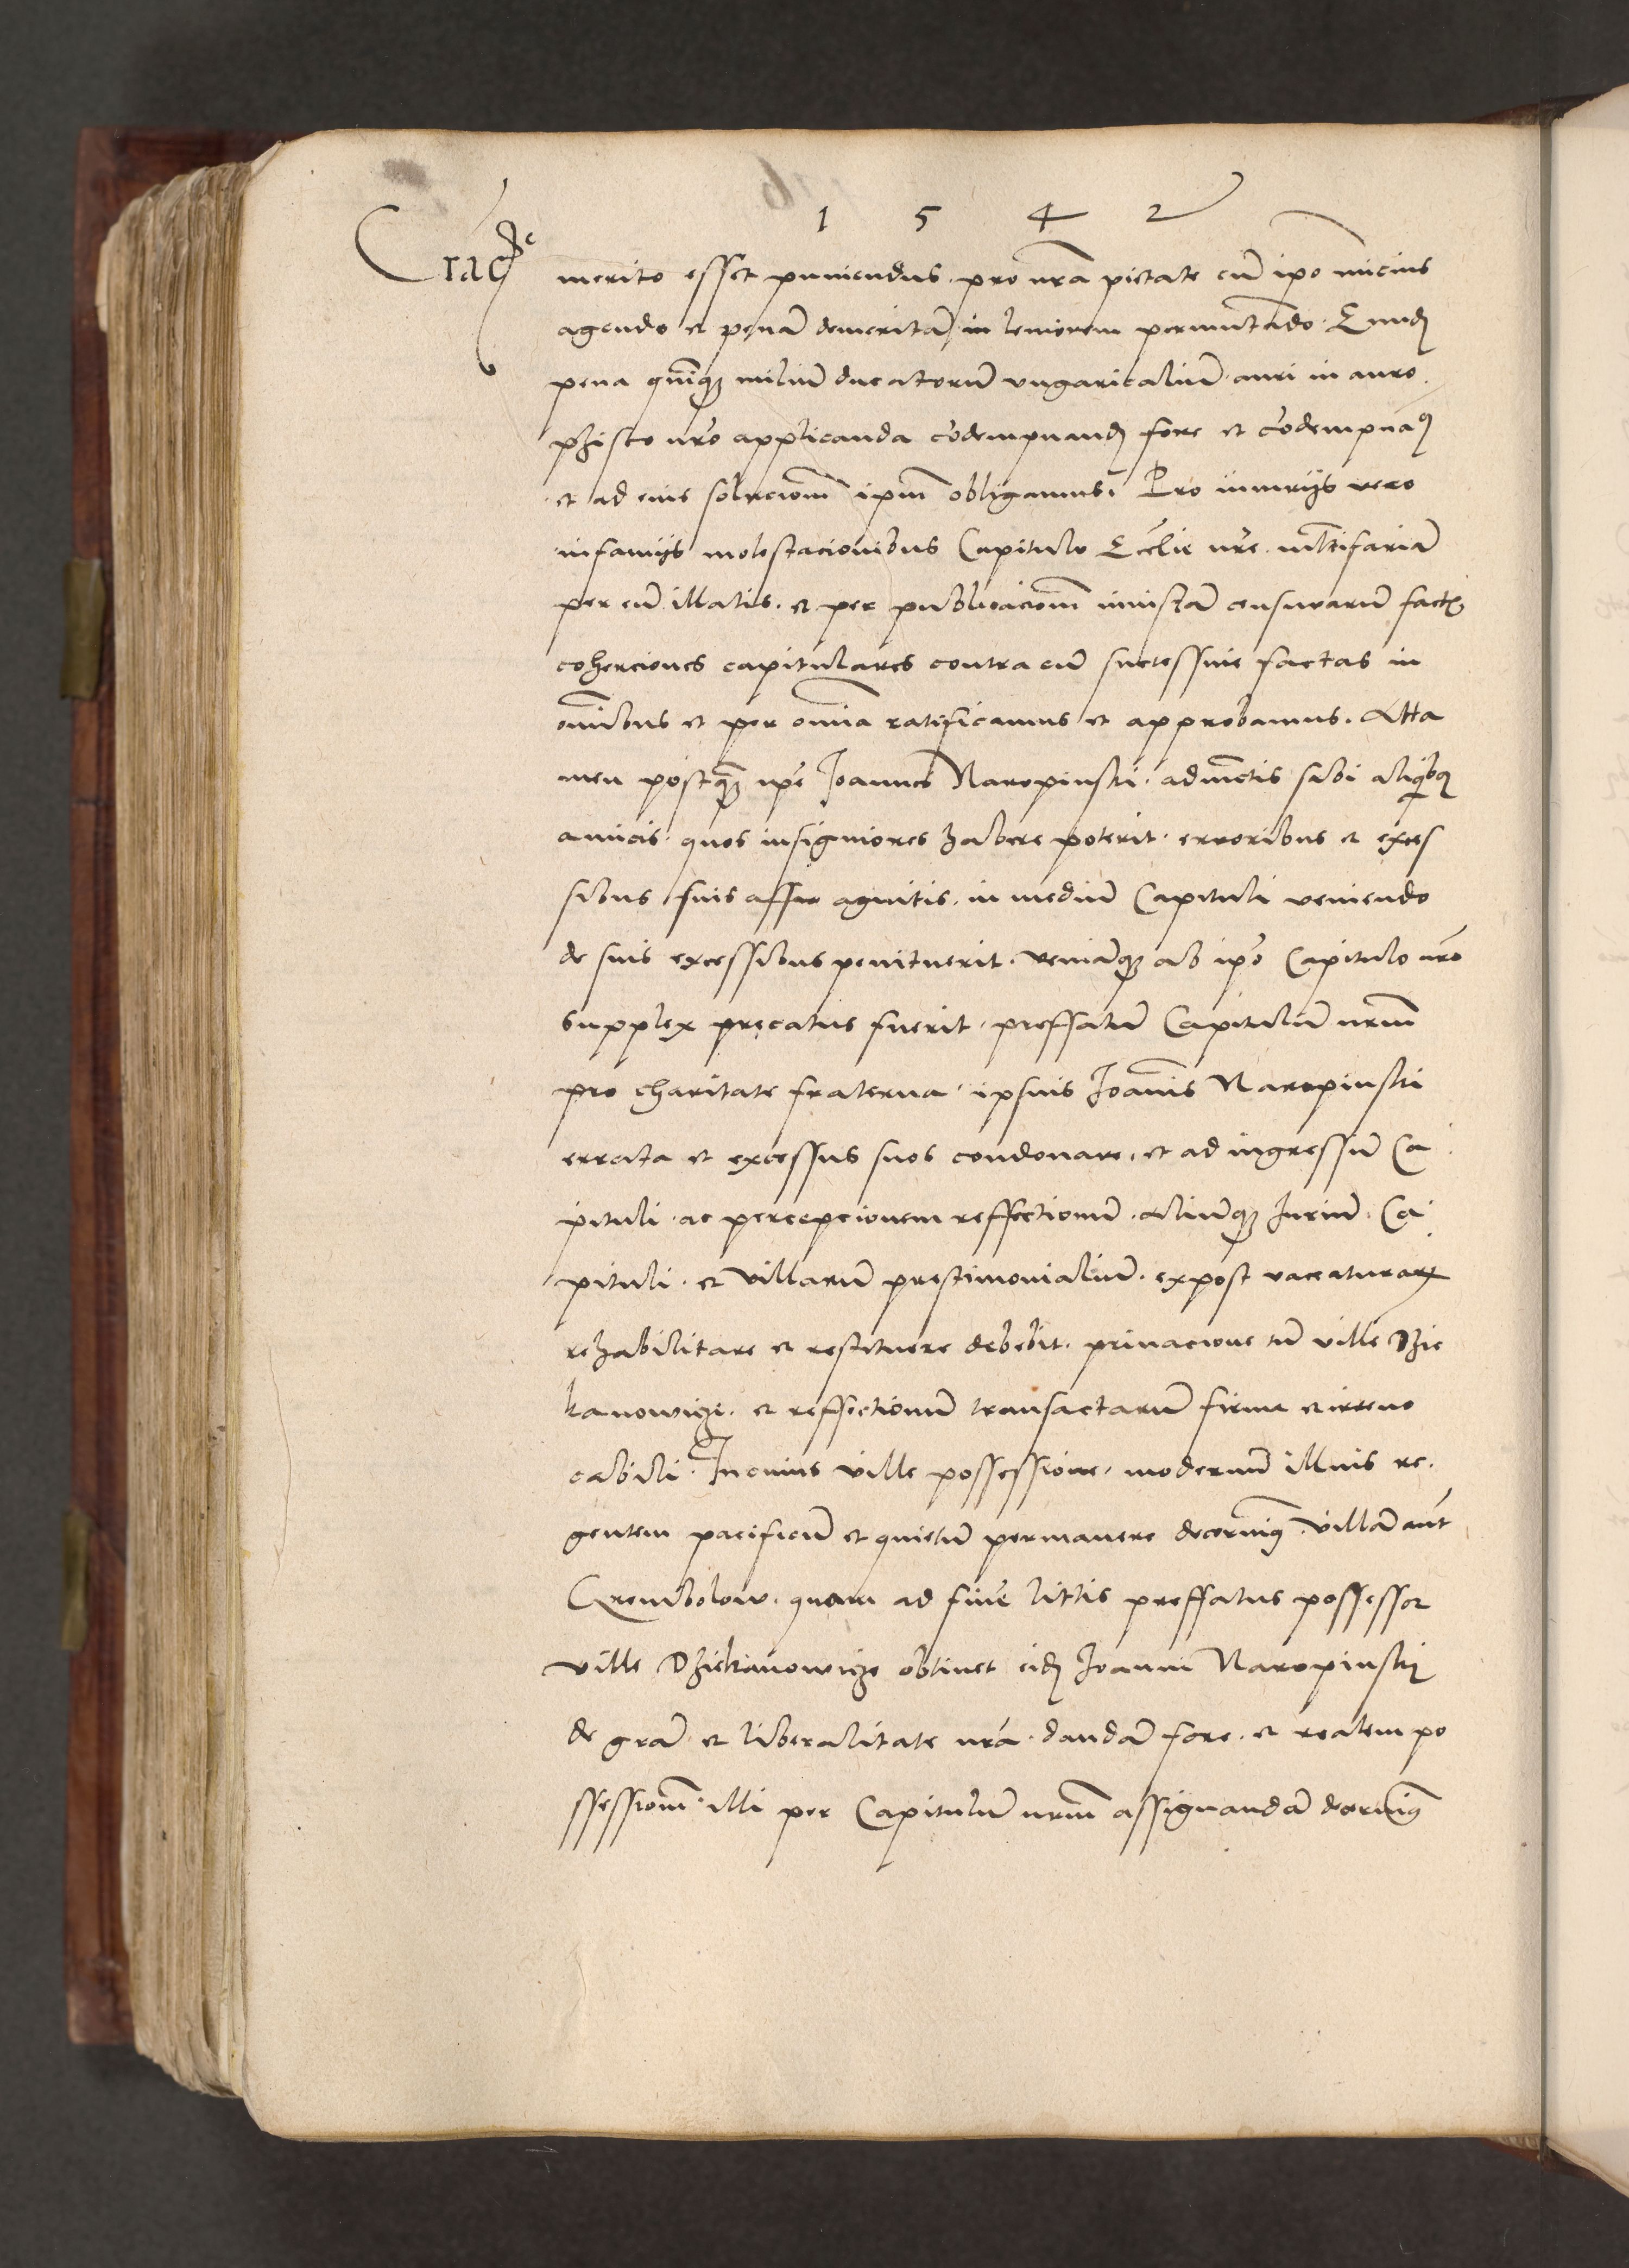 1 5 4 2
Crac[e]
merito esset puniendus. pro nrã pietate cũ ipo micius
agendo et penã demeritã in leniorem permutãdo. Eundẽ
pena quinq3 miliũ ducatorũ ungaricaliũ auri in auro
phisco nrõ applicanda cõdempnandũ fore et cõdempnam9
et ad eius soluciom̃ ipm̃ obligamus. Pro iniurijs vero
infamijs molestacionibus Capitulo Ecclie nrẽ. multifariã
per eũ illatis. et per publicaciom̃ iniustã censurarũ factis
cohereiones capitulares contra eũ successiue factas in
om̃ibus et per om̃ia ratificamus et approbamus. Atta
men postq3 ipẽ Joannes Naropinski. adiũctis sibi aliqb9
amicis. quos insigniores habere poterit. erroribus et exces
sibus suis agnitis. in mediũ Capituli veniendo
de suis excessibus penituerit. veniãq3 ab ipõ Capitulo nrõ
supplex precatus fuerit. preffatũ Capitulũ nrum̃
pro charitate fraterna. ipsius Joãnis Naropinski
errata et excessus suos condonare. et ad ingressũ Ca
pituli. ac percepcionem reffectionũ. aliurũq3 Juriũ. Ca
pituli. et villarũ prestimonialiũ. expost vacaturarum
rehabilitare et restituere debebit. priuacione tñ ville Dzie
kanowize. et reffectionũ transactarũ firma et irreuo
cabili. In cuius ville possessione. modernũ illius re
gentem pacificũ et quietũ permanere decernim9. villã aut̃
Grembolow. quam ad finẽ littis preffatus possessor
ville Dziekanowize obtinet eidẽ Joanni Naropinski
de grã et liberalitate nrã. dandã fore. et realem po
ssessiom̃. illi per Capitulũ nrum̃ assignandã decernim9